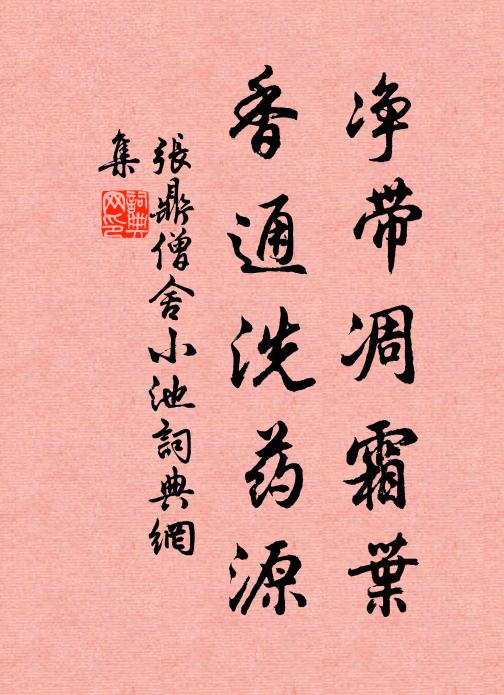 净带凋霜葉
香通洗药源
張鼎僧舍小池詞典網
集
詞典網印